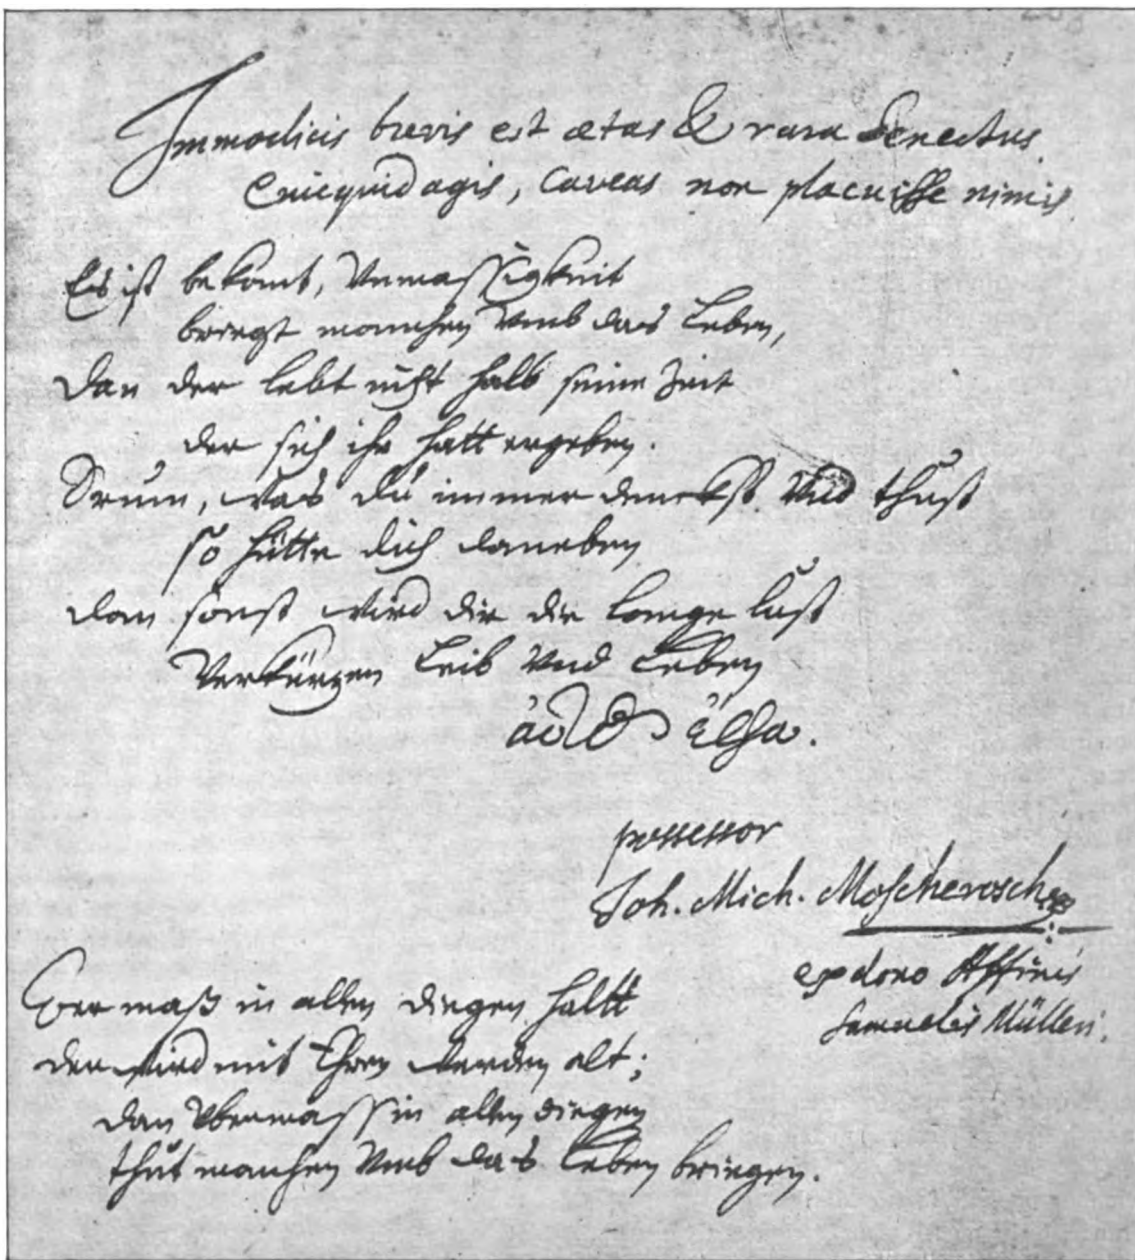 Immodicis brevis est ætas & rara Senectus.
Quicquid agis, caveas non placuisse nimis.
Es ist bekant, Vnmassigkeit
bringt manchen vmb das Leben,
Dan der lebt nicht halb seine Zeit
der sich ihr hatt ergeben.
Drum, was du immer denckst Vnd thust
so hütte dich daneben
dan sonst wird dir die lange lust
Verkürtzen Leib Vnd Leben
possessor
Joh. Mich. Moscherosch
ex dono Affinis
Samuelis Mülleri.
Wer maß in allen dingen haltt
der wird mit Ehren werden alt;
dan Vbermass in allen dingen
thut manchen Vmb das Leben bringen.